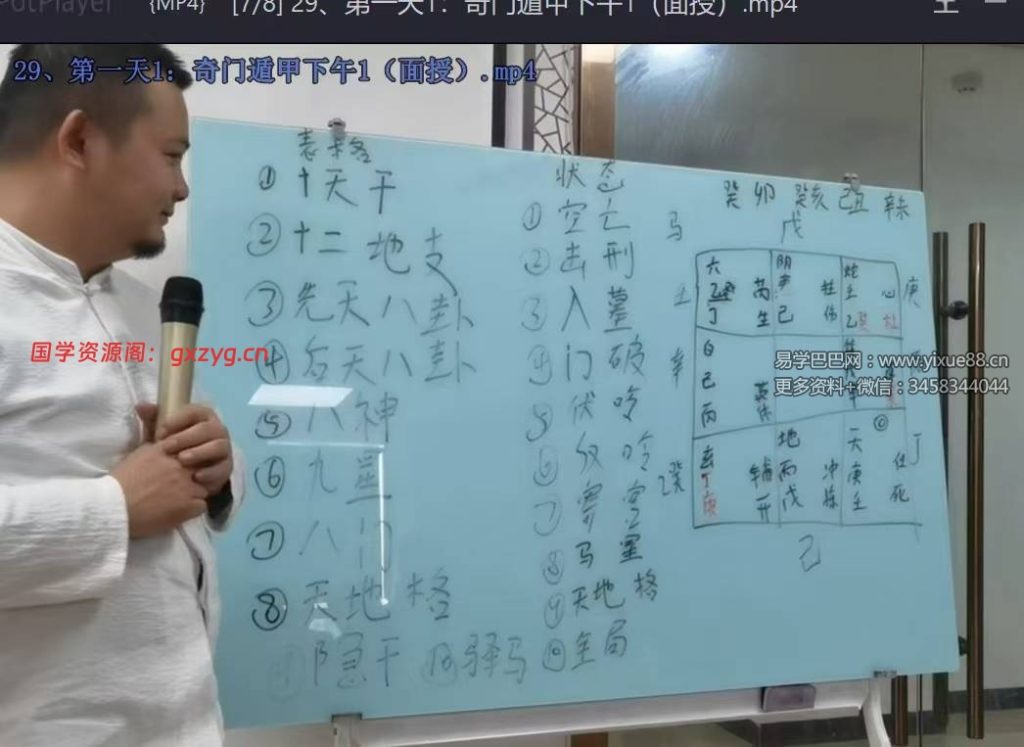 {MP4} [7/8] 29、第一天1：奇门遁甲下午1（面授）.mp4
29、第一天1：奇门遁甲下午1（面授）.mp4
表格
① 十天干
② 十二地支
③ 先天八卦
④ 后天八卦
⑤ 八神
⑥ 九星
⑦ 八门
⑧ 天地格
隐干 ⑩驿马
状态
① 空亡
② 击刑
③ 入墓
④ 门破
⑤ 伏吟
⑥ 反吟
⑦ 空
⑧ 马星
⑨ 天地格
⑩ 全局
癸卯 癸亥 己丑 辛未
马 戊
六 芮 阴 柱 蛇 心 庚
丁 生 己 伤 乙
辛 白
己
丙
玄 辅 地 冲 天 任 丁
丁 丙 庚
庚 开 戊 壬 死
癸
己
国学资源阁：gxzyg.cn
易学巴巴网：www.yixue88.cn
更多资料+微信：3458344044